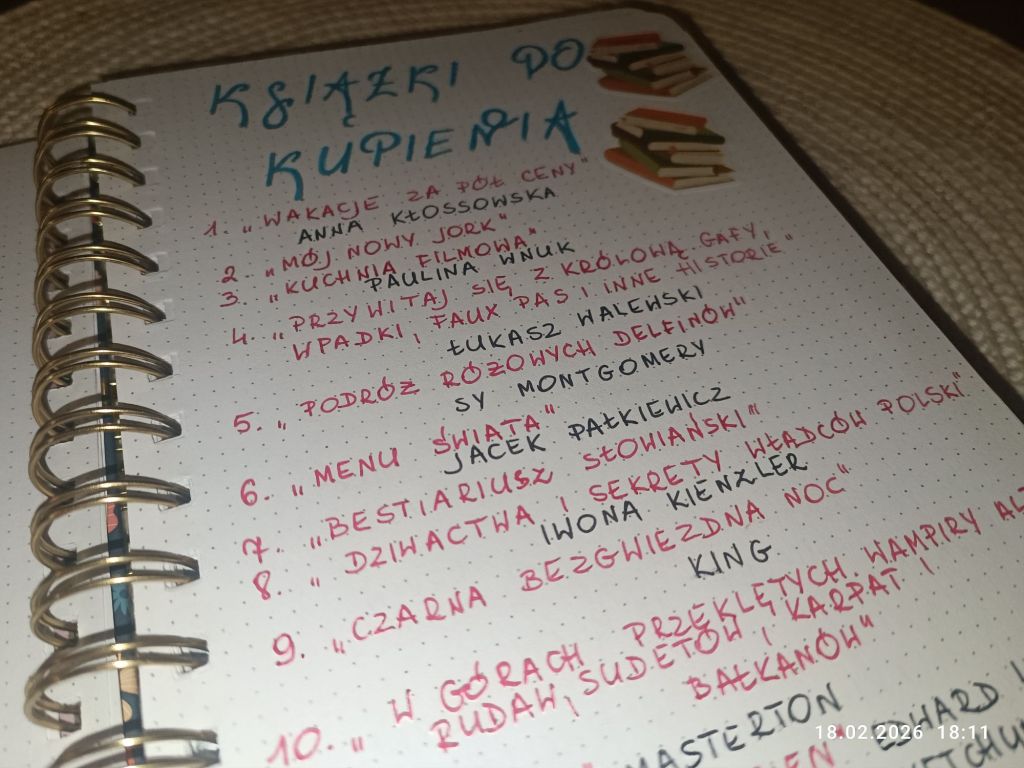 KSIĄŻKI DO
KUPIENIA
1. „WAKACJE ZA PÓŁ CENY"
ANNA KŁOSSOWSKA
2. „MÓJ NOWY JORK"
3. „KUCHNIA FILMOWA"
PAULINA WNUK
4. „PRZYWITAJ SIĘ Z KRÓLOWĄ. GAFY,
WPADKI, FAUX PAS I INNE HISTORIE"
ŁUKASZ WALEWSKI
5. „PODRÓŻ RÓŻOWYCH DELFINÓW"
SY MONTGOMERY
6. „MENU ŚWIATA"
JACEK PAŁKIEWICZ
7. „BESTIARIUSZ SŁOWIAŃSKI"
8. „DZIWACTWA I SEKRETY WŁADCÓW POLSKI"
IWONA KIENZLER
9. „CZARNA BEZGWIEZDNA NOC"
KING
10. „W GÓRACH PRZEKLĘTYCH. WAMPIRY
RUDAW, SUDETÓW, KARPAT I
BAŁKANÓW"
MASTERTON
EDWARD
18.02.2026 18:11